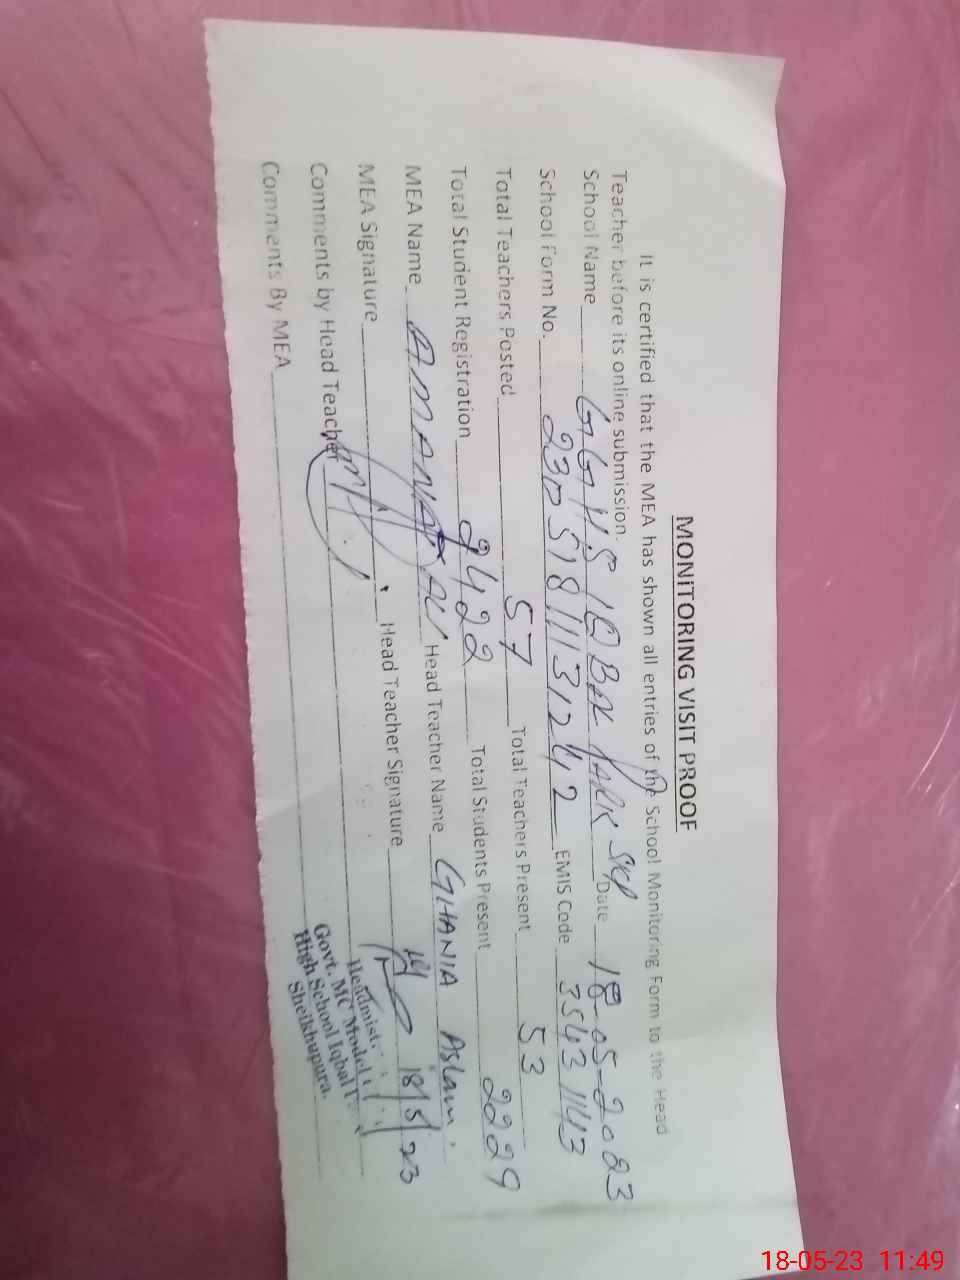 MONITORING VISIT PROOF
It is certified that the MEA has shown all entries of the School Monitoring Form to the Head
Teacher before its online submission.
School Name GGHS IQBAL PARK SKP Date 18-05-2023
School Form No. Total Teachers EMIS Code 35431143
Total Teachers Posted 57 Total Teachers Present 53
Total Student Registration 2422 Total Students Present 2229
MEA Name AMANAT ALI Head Teacher Name GHANIA Aslam
MEA Signature Head Teacher Signature 18/5/23
Comments by Head Teacher
Comments By MEA
Govt. MC Model
High School Iqbal
Sheikhupura.
18-05-23 11:49